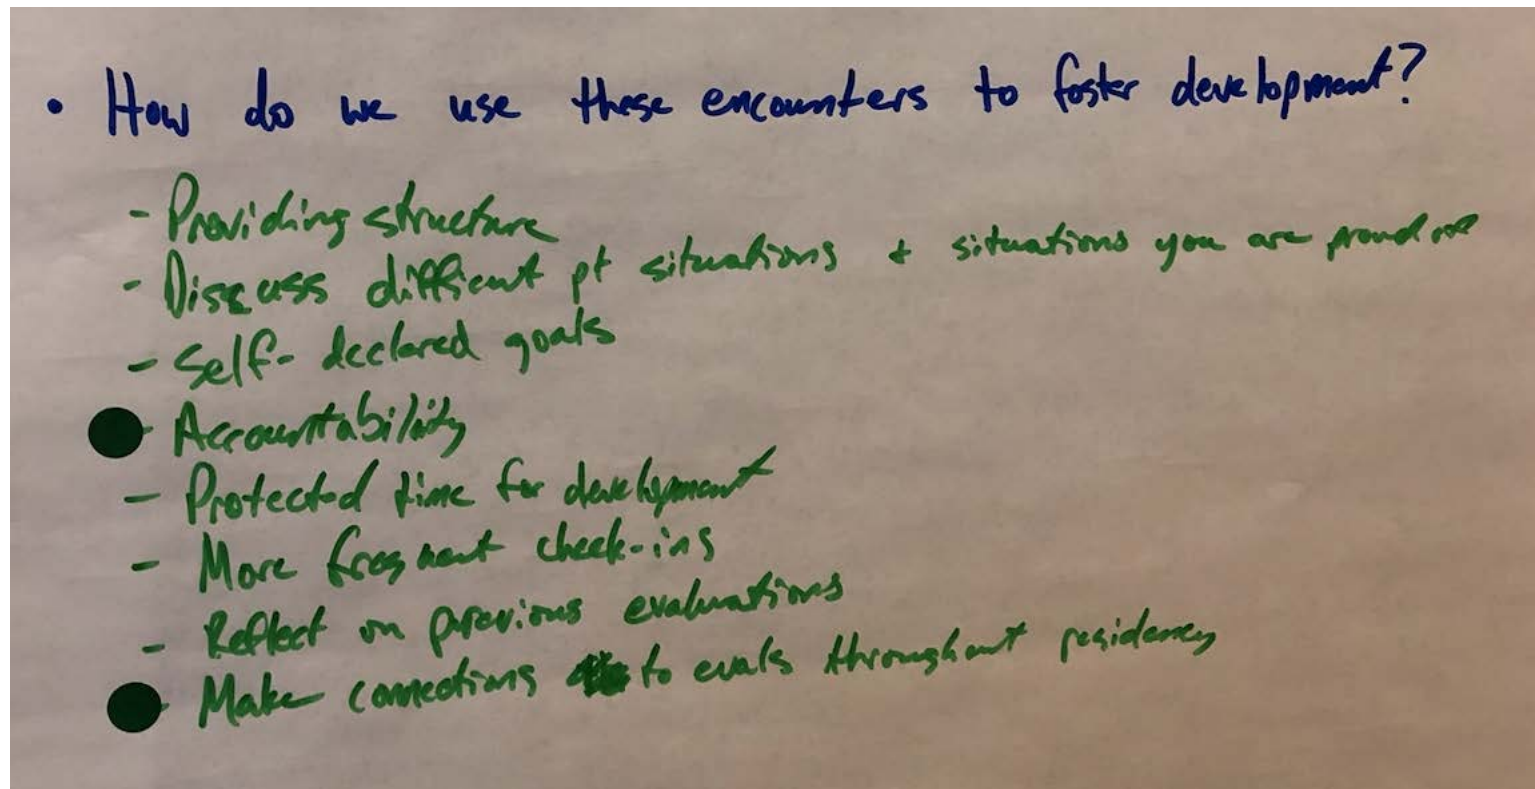 • How do we use these encounters to foster development?
- Providing structure
- Discuss difficult pt situations + situations you are proud of
- Self-declared goals
- Accountability
- Protected time for development
- More frequent check-ins
- Reflect on previous evaluations
- Make connections to evals throughout residency